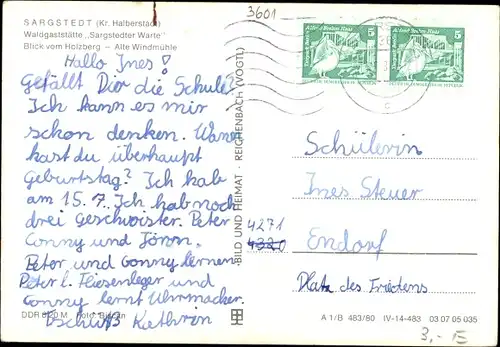 3601
SARGSTEDT (Kr. Halberstadt)
Waldgaststätte „Sargstedter Warte"
Blick vom Holzberg – Alte Windmühle
Hallo Ines!
Gefällt Dir die Schule?
Ich kann es mir
schon denken. Wann
hast du überhaupt
Geburtstag? Ich hab
am 15.7. Ich hab noch
drei Geschwister. Peter
Conny und Jörom.
Peter und Conny lernen
Peter l. Fliesenleger und
Conny lernt Uhrmacher.
Tschüß Kathren
DDR 0,20 M Foto:
BILD UND HEIMAT · REICHENBACH (VOGTL)
5
5
Schülerin
Ines Steuer
4271
4320
Endorf
Platz des Friedens
A 1/B 483/80 IV-14-483 03 07 05 035
3,- E